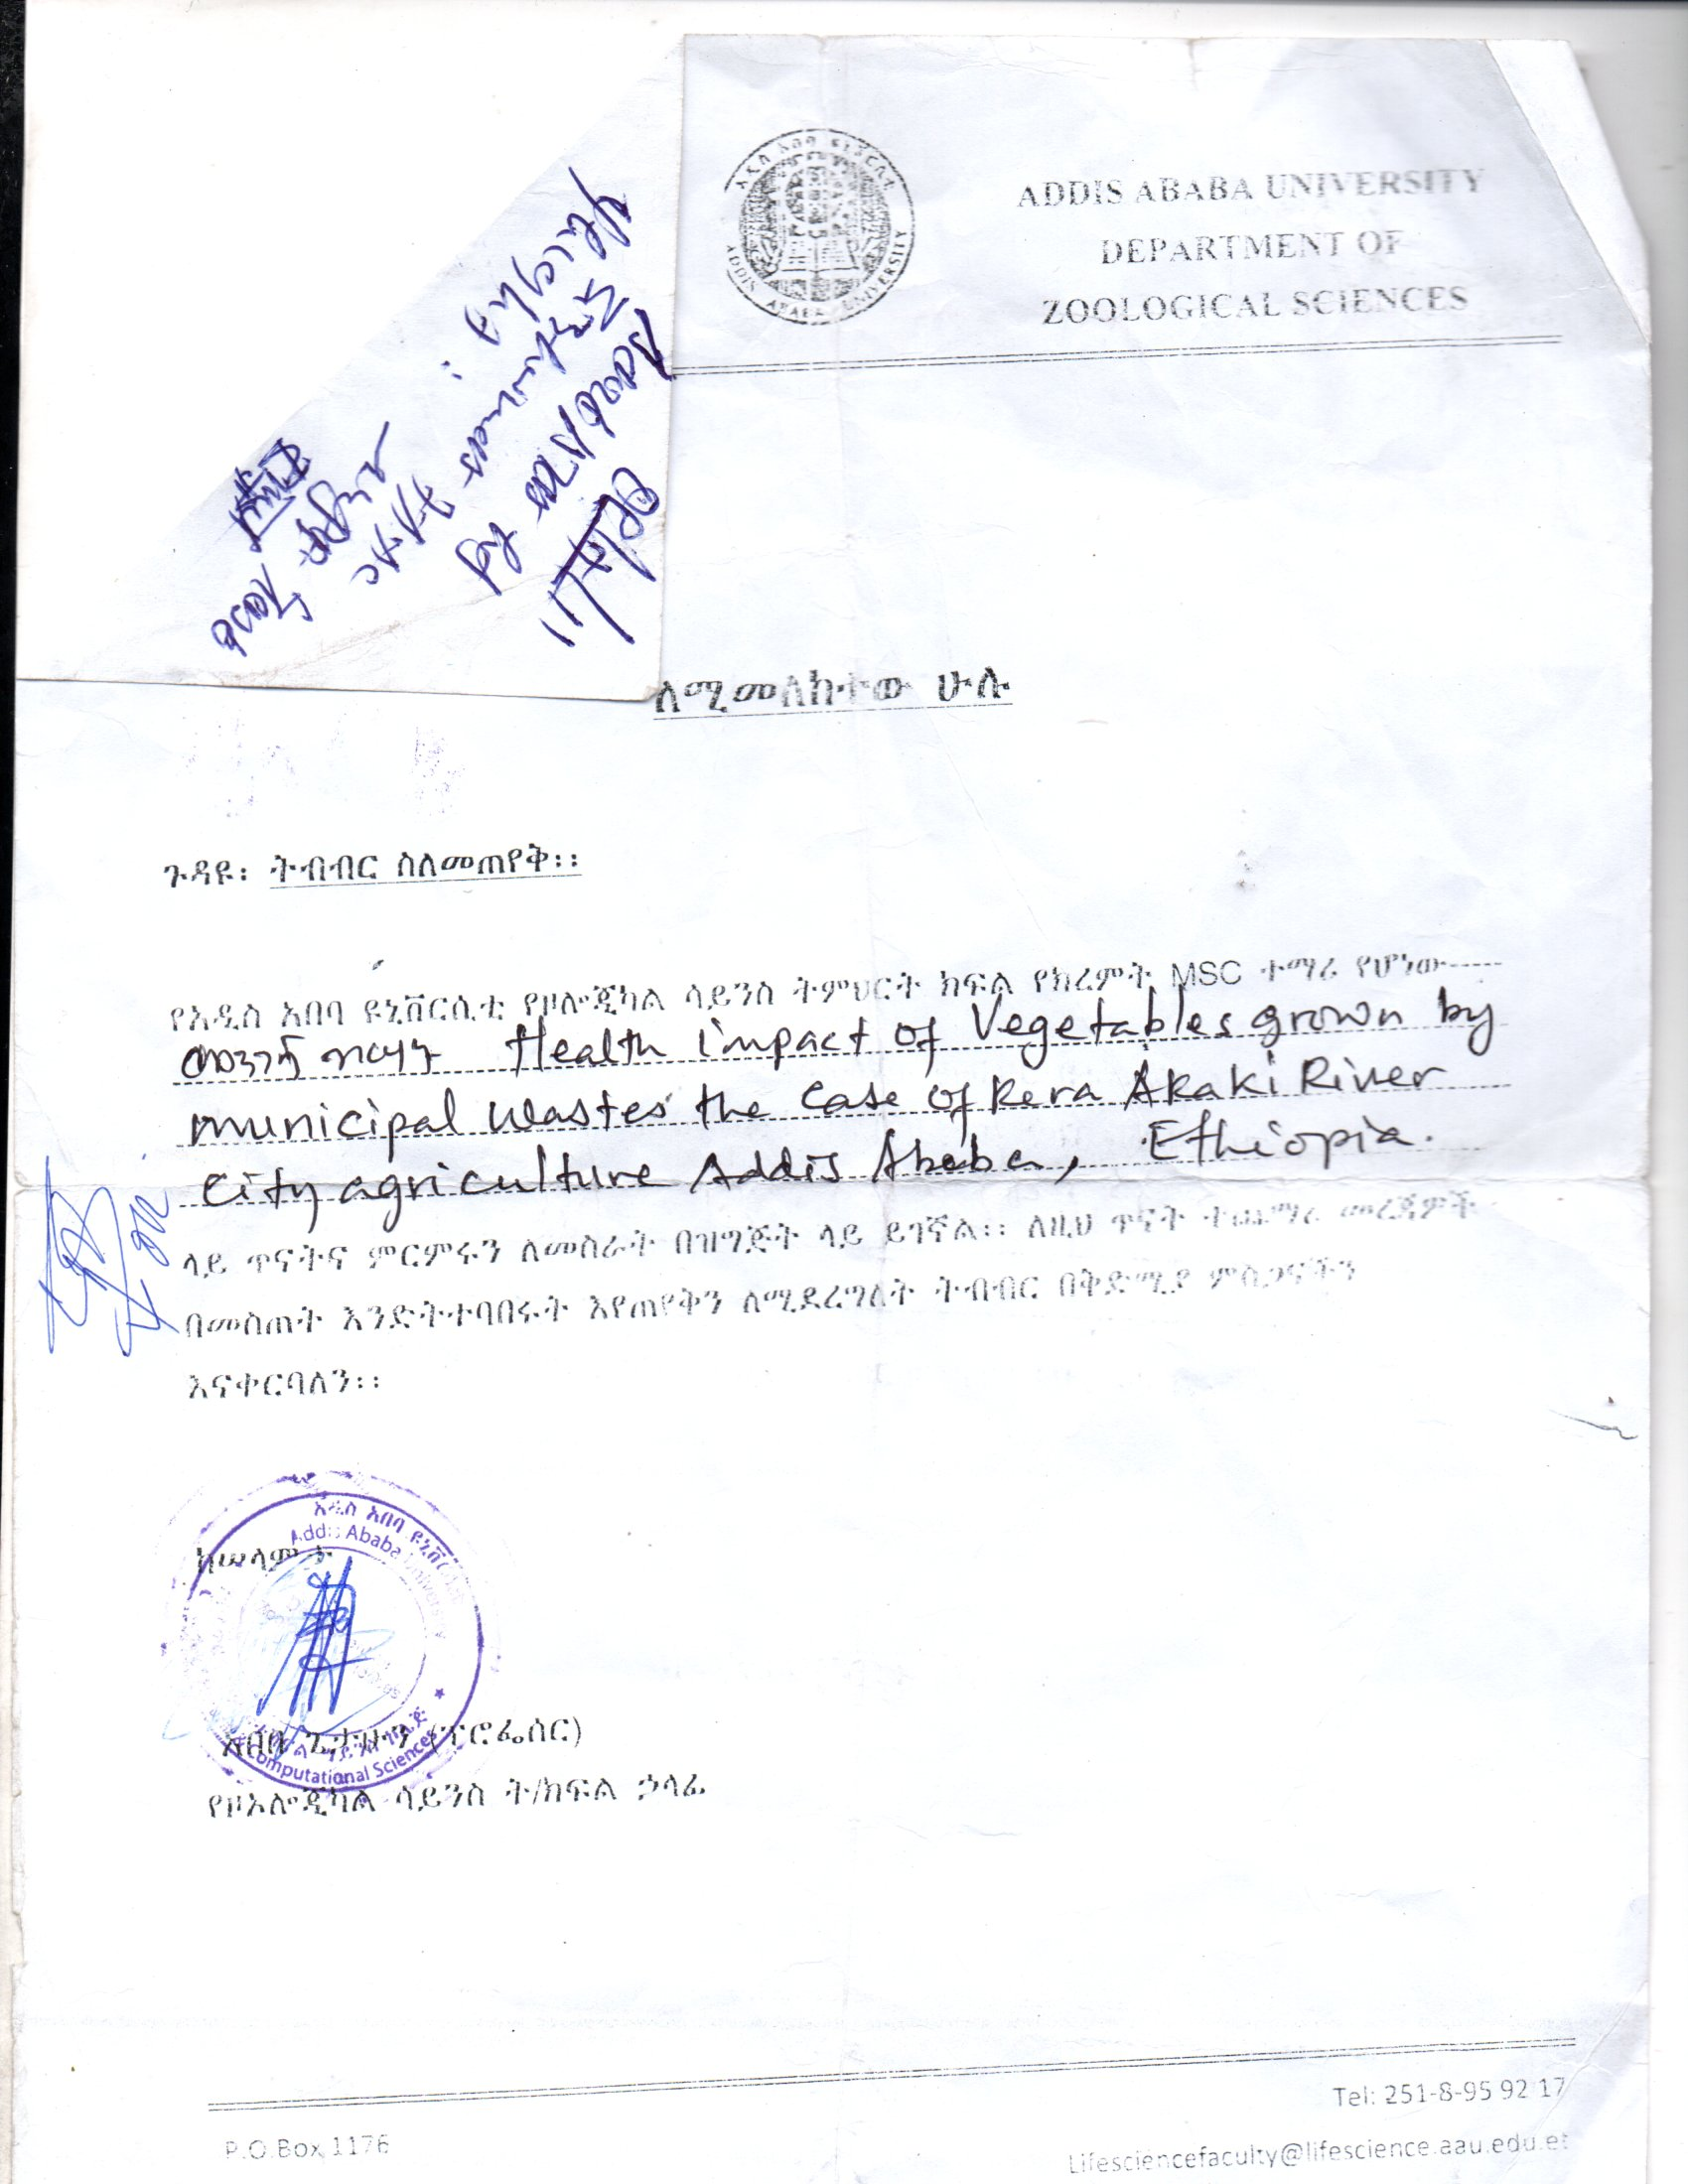 አዲስ አበባ ዩኒቨርሲቲ
ADDIS ABABA UNIVERSITY
ADDIS ABABA UNIVERSITY
DEPARTMENT OF
ZOOLOGICAL SCIENCES
ለሚመለከተው ሁሉ
ጉዳዩ፡ ትብብር ስለመጠየቅ፡፡
የአዲስ አበባ ዩኒቨርሲቲ የዞሎጂካል ሳይንስ ትምህርት ክፍል የክረምት MSC ተማሪ የሆነው-----
Health impact of Vegetables grown by
municipal wastes the case of Kera Akaki River
city agriculture Addis Ababa, Ethiopia.
ላይ ጥናትና ምርምሩን ለመስራት በዝግጅት ላይ ይገኛል፡፡ ለዚህ ጥናት ተጨማሪ መረጃዎች
በመስጠት እንድትተባበሩት እየጠየቅን ለሚደረግለት ትብብር በቅድሚያ ምስጋናችን
እናቀርባለን፡፡
አዲስ አበባ ዩኒቨር
Addis Ababa University
ከሠላምታ
አበበ ጌታሁን (ፕሮፌሰር)
Computational Sciences
የዞኦሎጂካል ሳይንስ ት/ክፍል ኃላፊ
Tel: 251-8-95 92 17
P.O.Box 1176
Lifesciencefaculty@lifescience.aau.edu.et